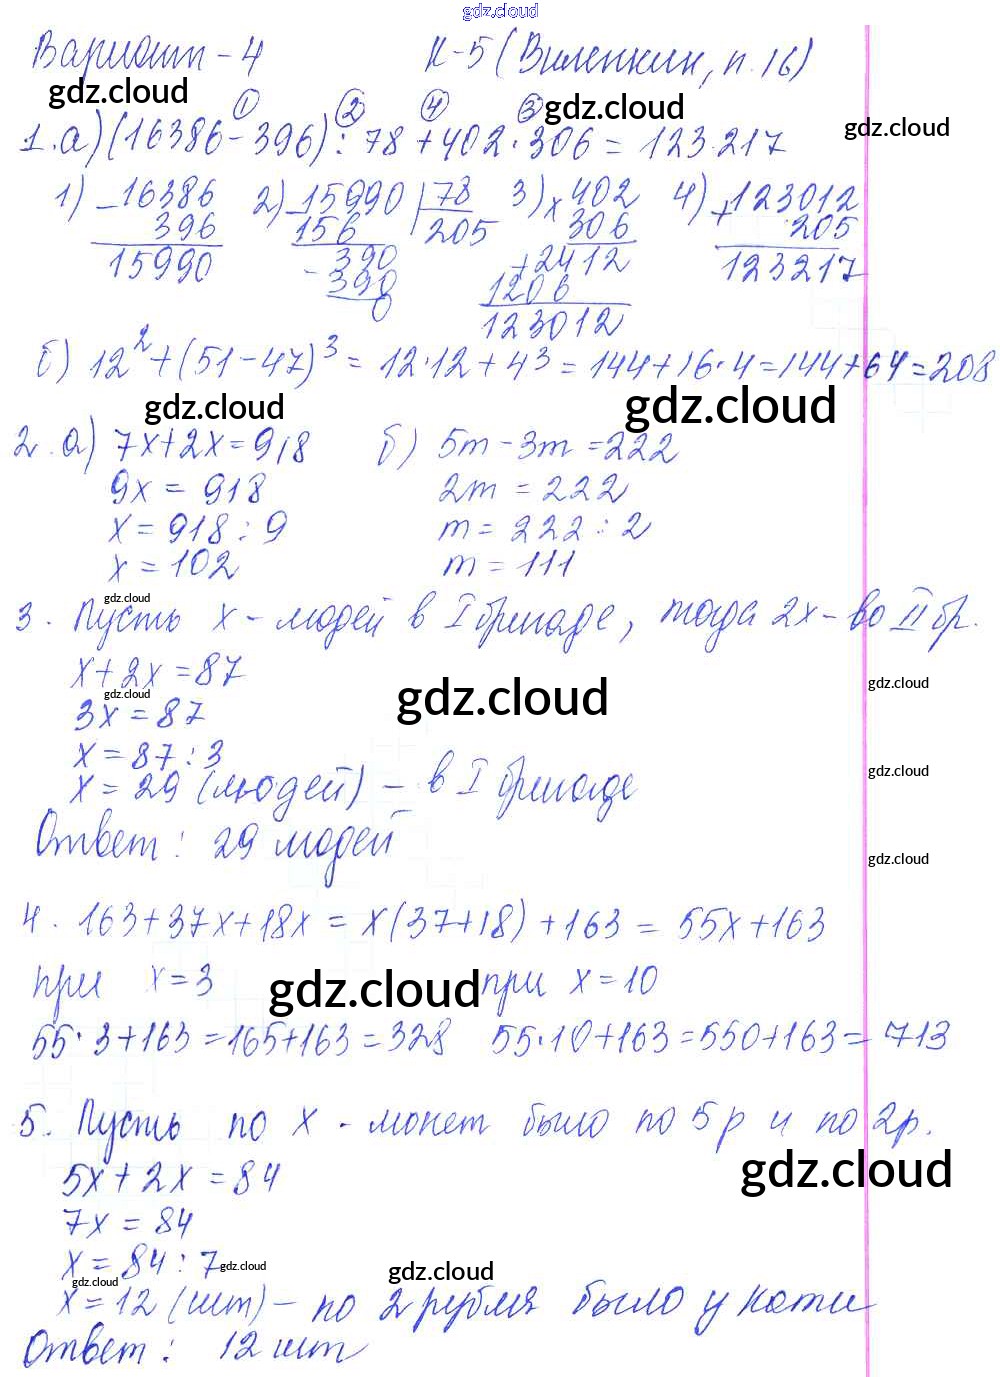 gdz.cloud
Вариант - 4 К-5 (Виленкин, п. 16)
gdz.cloud gdz.cloud gdz.cloud
① ② ④ ③
1. а) (16386 - 396) : 78 + 402 · 306 = 123 217
1) - 16386 2) - 15990 | 78 3) × 402 4) + 123012
396 156 205 306 205
15990 - 390 + 2412 123217
390 1206
0 123012
б) 12² + (51 - 47)³ = 12 · 12 + 4³ = 144 + 16 · 4 = 144 + 64 = 208
gdz.cloud gdz.cloud
2. а) 7x + 2x = 918 б) 5m - 3m = 222
9x = 918 2m = 222
x = 918 : 9 m = 222 : 2
x = 102 m = 111
gdz.cloud
3. Пусть x - людей в I бригаде, тогда 2x - во II бр.
x + 2x = 87
gdz.cloud gdz.cloud gdz.cloud
3x = 87
x = 87 : 3
gdz.cloud
x = 29 (людей) - в I бригаде
Ответ: 29 людей
gdz.cloud
4. 163 + 37x + 18x = x(37 + 18) + 163 = 55x + 163
при x = 3 при x = 10
gdz.cloud
55 · 3 + 163 = 165 + 163 = 328 55 · 10 + 163 = 550 + 163 = 713
5. Пусть по x - монет было по 5 р и по 2 р.
gdz.cloud
5x + 2x = 84
7x = 84
x = 84 : 7
gdz.cloud gdz.cloud gdz.cloud
x = 12 (шт) - по 2 рубля было у Кати
Ответ: 12 шт